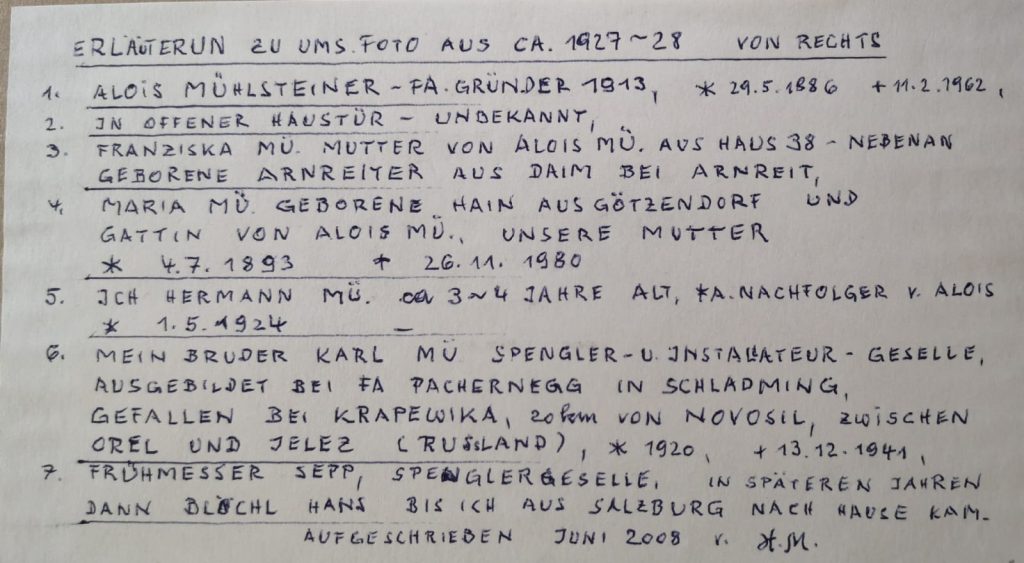 ERLÄUTERUN ZU UMS. FOTO AUS CA. 1927~28 VON RECHTS
1. ALOIS MÜHLSTEINER - FA. GRÜNDER 1913, * 29.5.1886 + 11.2.1962,
2. IN OFFENER HAUSTÜR - UNBEKANNT,
3. FRANZISKA MÜ. MUTTER VON ALOIS MÜ. AUS HAUS 38 - NEBENAN
GEBORENE ARNREITER AUS DAIM BEI ARNREIT,
4. MARIA MÜ. GEBORENE HAIN AUS GÖTZENDORF UND
GATTIN VON ALOIS MÜ., UNSERE MUTTER
* 4.7.1893 + 26.11.1980
5. ICH HERMANN MÜ. ca 3~4 JAHRE ALT, FA. NACHFOLGER v. ALOIS
* 1.5.1924 -
6. MEIN BRUDER KARL MÜ SPENGLER- U. INSTALLATEUR - GESELLE,
AUSGEBILDET BEI FA PACHERNEGG IN SCHLADMING,
GEFALLEN BEI KRAPEWIKA, 20 km VON NOVOSIL, ZWISCHEN
OREL UND JELEZ (RUSSLAND), * 1920, + 13.12.1941,
7. FRÜHMESSER SEPP, SPENGLERGESELLE, IN SPÄTEREN JAHREN
DANN BLÖCHL HANS BIS ICH AUS SALZBURG NACH HAUSE KAM.
AUFGESCHRIEBEN JUNI 2008 v. H.M.